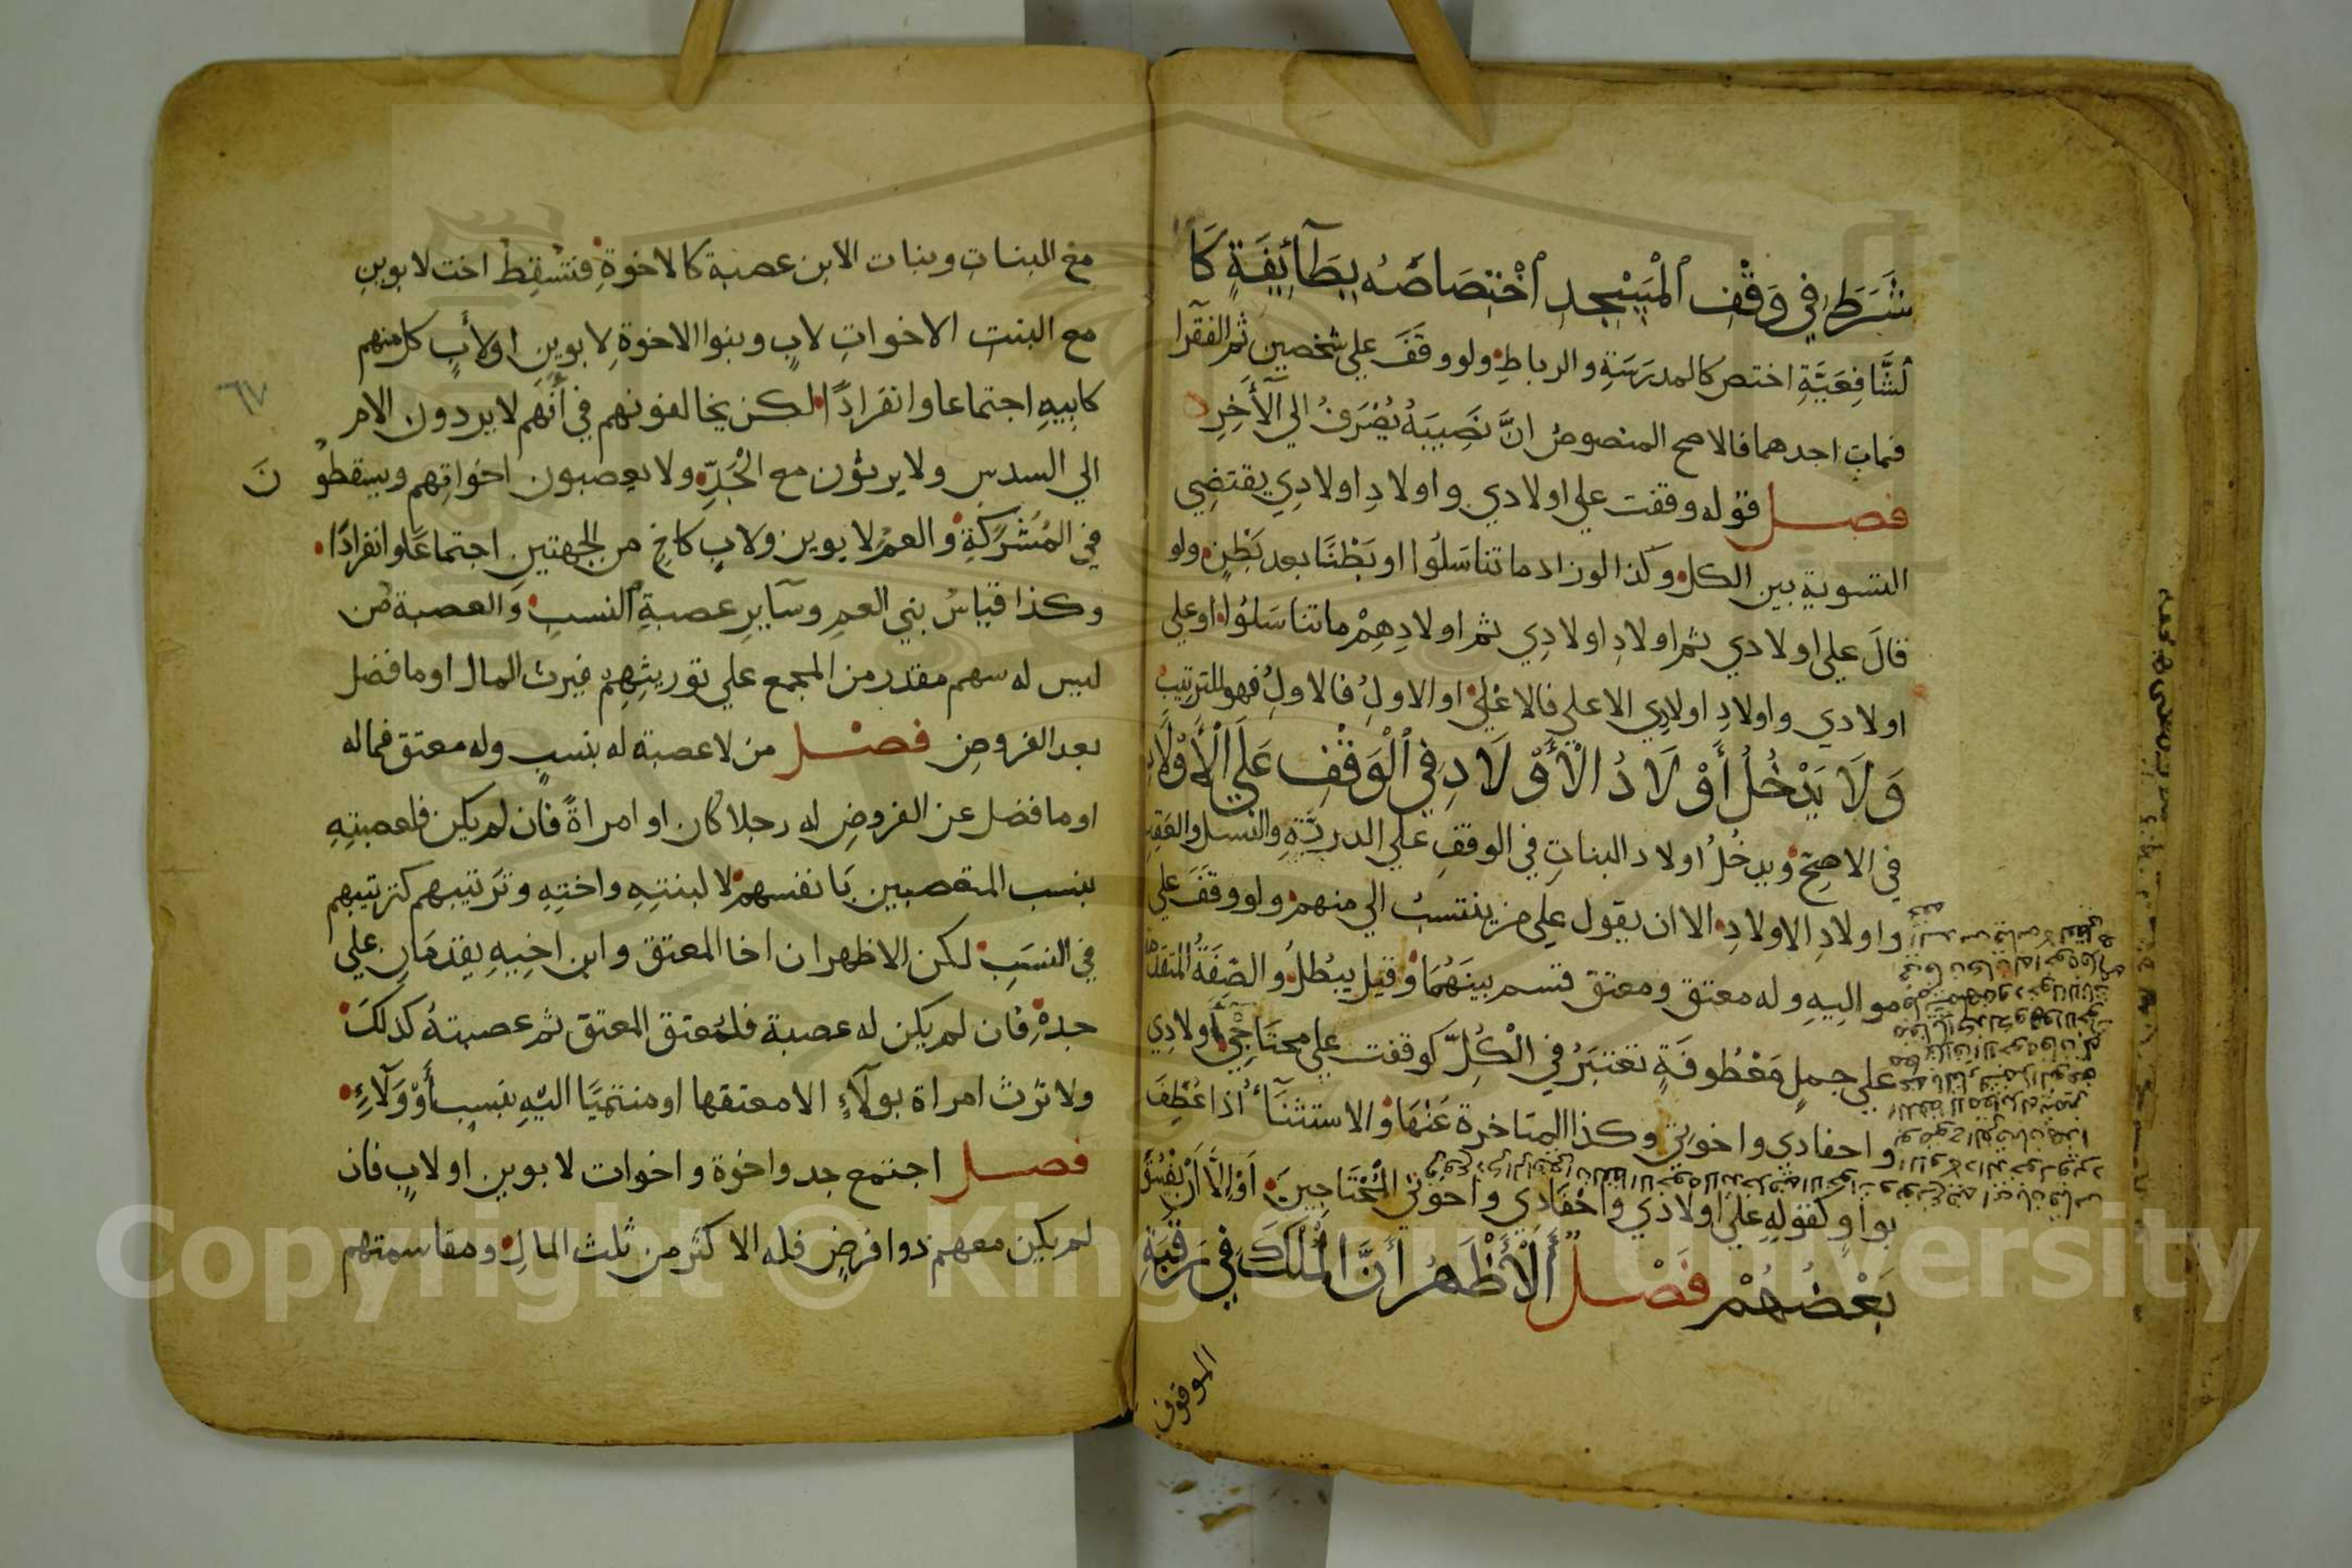 شَرَطَ فِي وَقْفِ ٱلْمَسْجِدِ ٱخْتِصَاصُهُ بِطَآئِفَةٍ كَا
لشَّافِعَيَّةِ اختص كالمدرَسَةِ والرباطِ ولو وقَفَ علي شخصين ثم الفقرا
فمات احدهما فالاصح المنصوص انَّ نَصِيبَهُ يُصْرَفُ الي الآخِرِ
فصل قوله وقفت علي اولادي واولادِ اولادِي يقتضِي
التسوية بين الكل وكذا لو زاد ما تناسَلُوا او بَطْنًا بعد بَطْنٍ ولو
قالَ علي اولادي ثم اولادِ اولادِي ثم اولادِهِمْ ما تناسَلُوا او علي
اولادي واولادِ اولادِي الاعلي فالاعْلَي او الاولِ فالاولِ فهو للترتيب
وَلَا يَدْخُلُ أَوْلَادُ الْأَوْلَادِ فِي ٱلْوَقْفِ عَلَي ٱلْأَوْلَادِ
في الاصحّ ويدخُلُ اولاد البناتِ في الوقفِ علي الدريَّةِ والنسل والعقِبِ
واولادِ الاولادِ الا ان يقول علي من ينتسبُ الي منهم ولو وقَفَ علي
مواليهِ وله معتق ومعتق قسم بينَهُمَا وقيل يبْطلُ والصّفَةُ المتقدمة
علي جملٍ مَعْطُوفَةٍ تعْتبَرُ في الْكُلِّ كوقفت علي محتَاجِي أَولادِي
واحفادي واخوتي وكذا المتاخرة عَنْهَا والاستثنَآءُ اذا عُطِفَ
بواوٍ كقولِهِ علي اولادي واحْفَادي واخوتي الْمُحْتَاجِينَ أَوْ إِلَّا أَنْ يَفْسُقَ
بَعْضُهُمْ فَصْل أَلْأَظْهَرُ أَنَّ الْمُلْكَ فِي رَقَبَةِ
الموقوف
مع البناتِ وبنات الابن عصبة كالاخوةِ فتَسْقِطُ اخت لابوينِ
مع البنت الاخواتِ لابٍ وبنوا الاخوةِ لابوينِ اولأَبٍ كل منهم
كابيهِ اجتماعا وانفرادًا لكن يخالفونهم في أَنَّهم لا يردون الام
٦٧
الي السدسِ ولا يرثون مع الْجَدِّ ولا يعصبون اخواتِهم ويسقطو نَ
في المُشَرَّكَةِ والعمْ لابوين ولابٍ كاخٍ من الجهتينِ اجتماعَا وانفرادًا
وكذا قياسُ بني العمِ وسَآيرِ عصبةِ ٱلنسبِ وَالعصبة مَن
ليس له سهم مقدر من المجمع علي توريثِهِمْ فيرث المال او ما فضل
بعد الفروضِ فصل من لا عصبة له بنسبٍ وله معتق فماله
او ما فضل عن الفروضِ له رجلا كان او امراةً فان لم يكن فلعصبتِهِ
بنسب المتعصبين بَانفسهمْ لا لبنتِهِ واختِهِ وتَرتيبهم كترتيبهم
في النسَبِ لكن الاظهر ان اخا المعتق وابن اخِيهِ يقدمَانِ علي
جدهِ فان لم يكن له عصبة فلمُعتِق المعتق ثم عصبتهُ كذلكَ
ولا تَرث امراة بولَآءٍ الا معتقها او منتميًا اليْهِ بنسبٍ أَوْ وَلَآءٍ
فصل اجتمع جد واخوة واخوات لابوين اولابٍ فان
لم يكن معهم ذوا فرضٍ فله الاكثر من ثلث المالِ ومقاسمتهم
Copyright © King Saud University